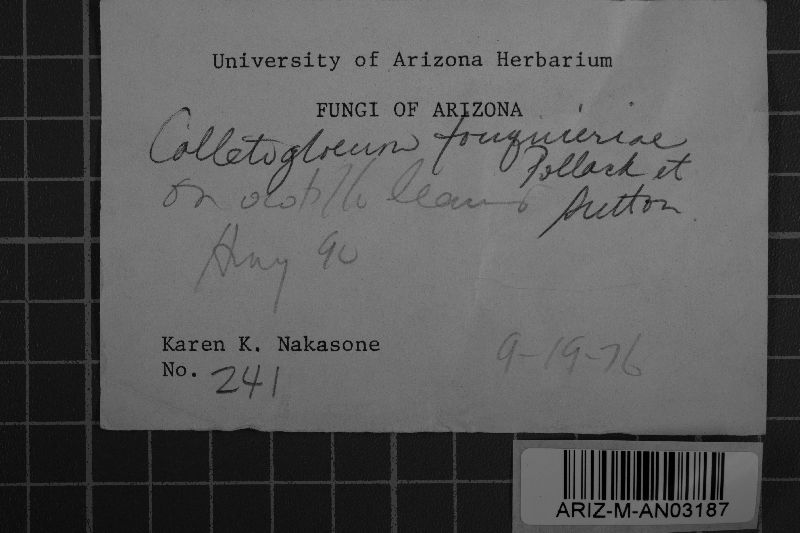 University of Arizona Herbarium
FUNGI OF ARIZONA
Colletogloeum fouquieriae
Pollack et
Sutton
on ocotillo leaves
Hwy 90
Karen K. Nakasone
No. 241
9-19-76
ARIZ-M-AN03187